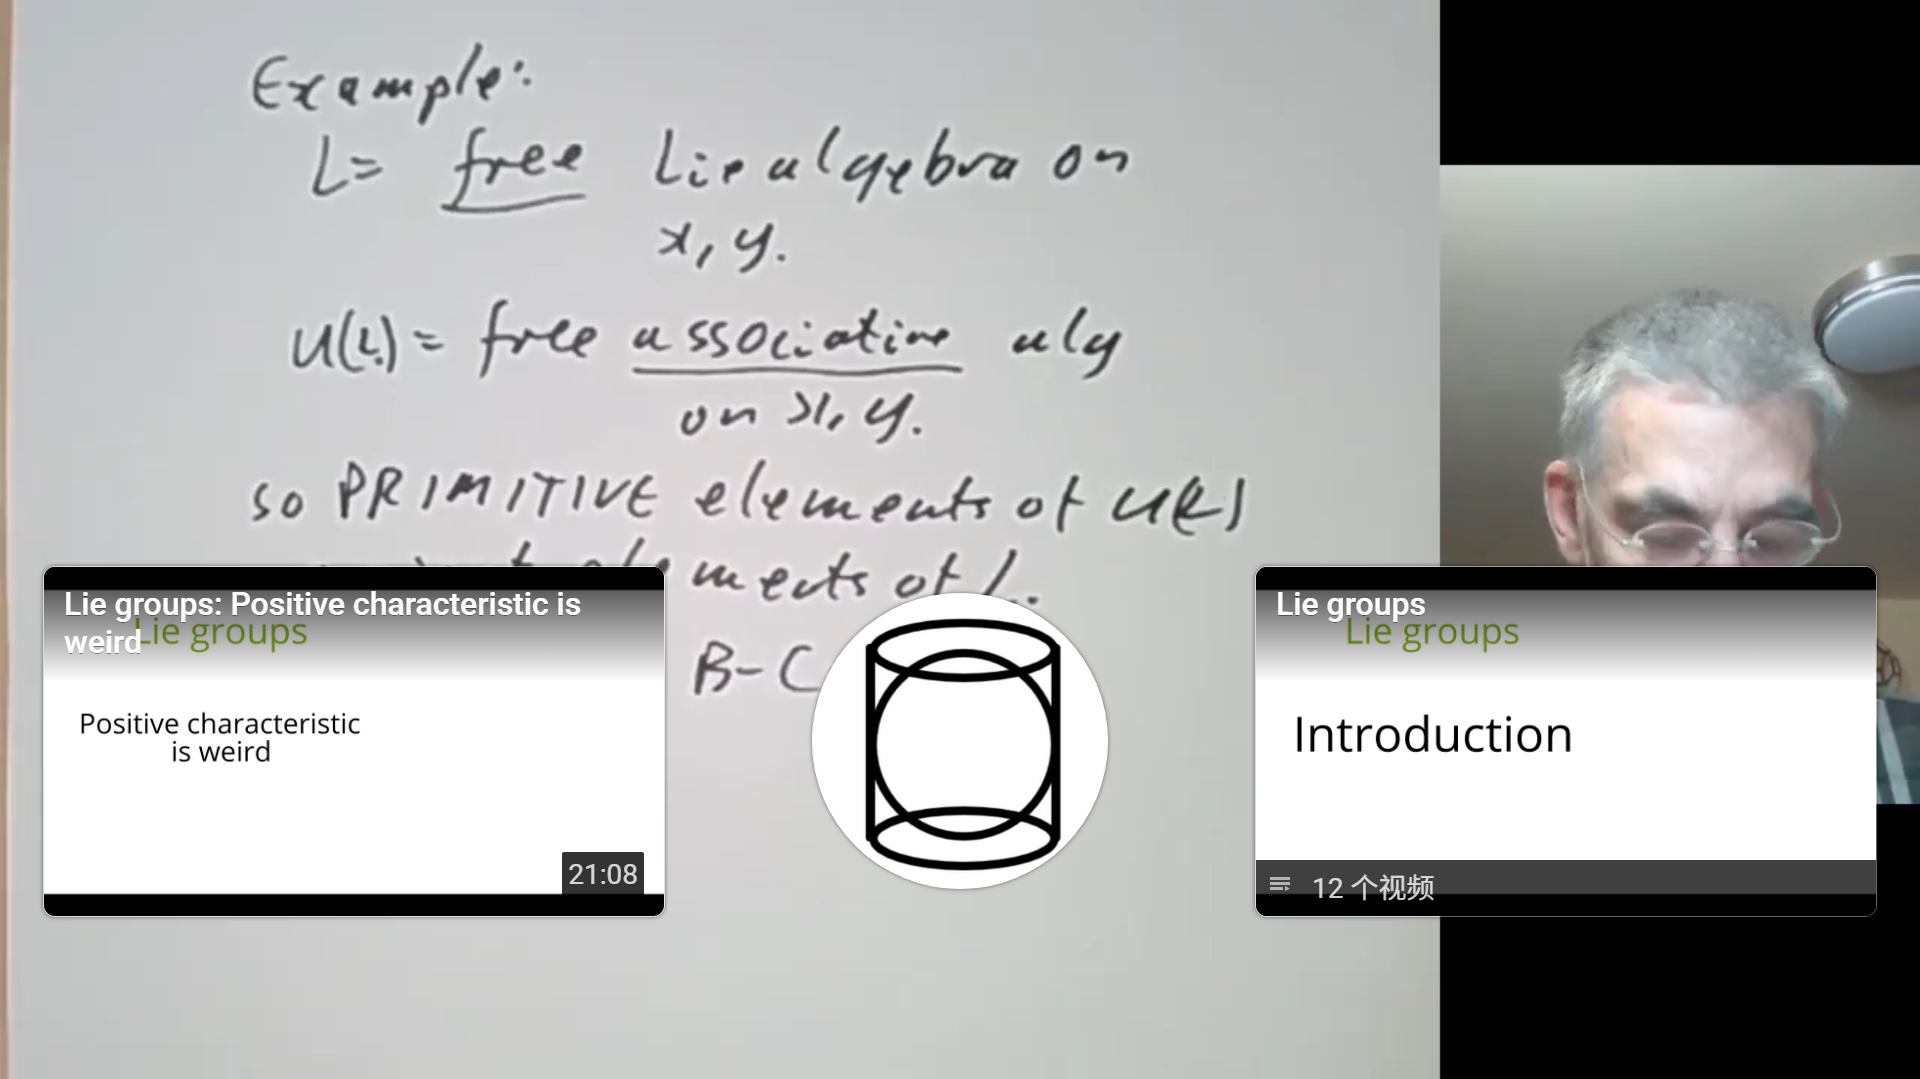 Example:
L= free Lie algebra on
x, y.
U(L) = free associative alg
on x, y.
so PRIMITIVE elements of U(L)
elements of L.
B-C
Lie groups: Positive characteristic is
weird
Lie groups
Positive characteristic
is weird
21:08
Lie groups
Lie groups
Introduction
12 个视频